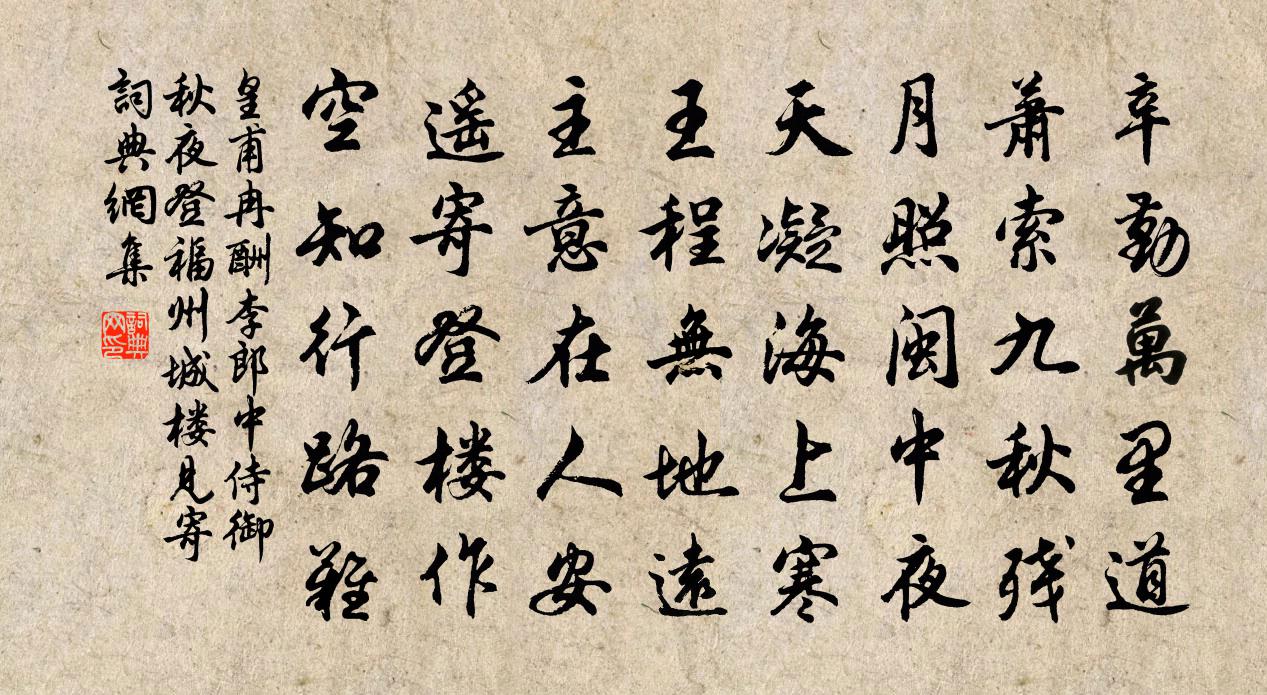 辛勤萬里道
萧索九秋残
月照闽中夜
天凝海上寒
王程無地遠
主意在人安
遥寄登楼作
空知行路難
皇甫冉酬李郎中侍御
秋夜登福州城楼見寄
詞典網集
詞典网印